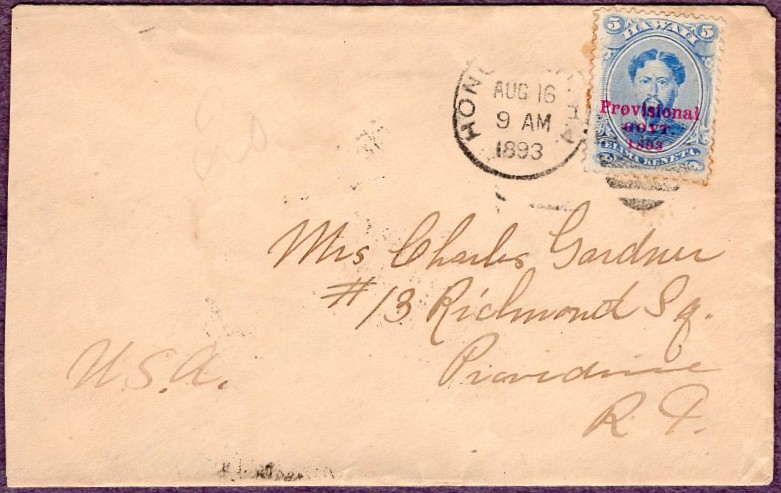 5 HAWAII 5
Provisional
GOVT.
1893
ELIMA KENETA
HONO
AUG 16
9 AM
1893
Mrs Charles Gardner
#13 Richmond Sq.
Providence
R. I.
U.S.A.